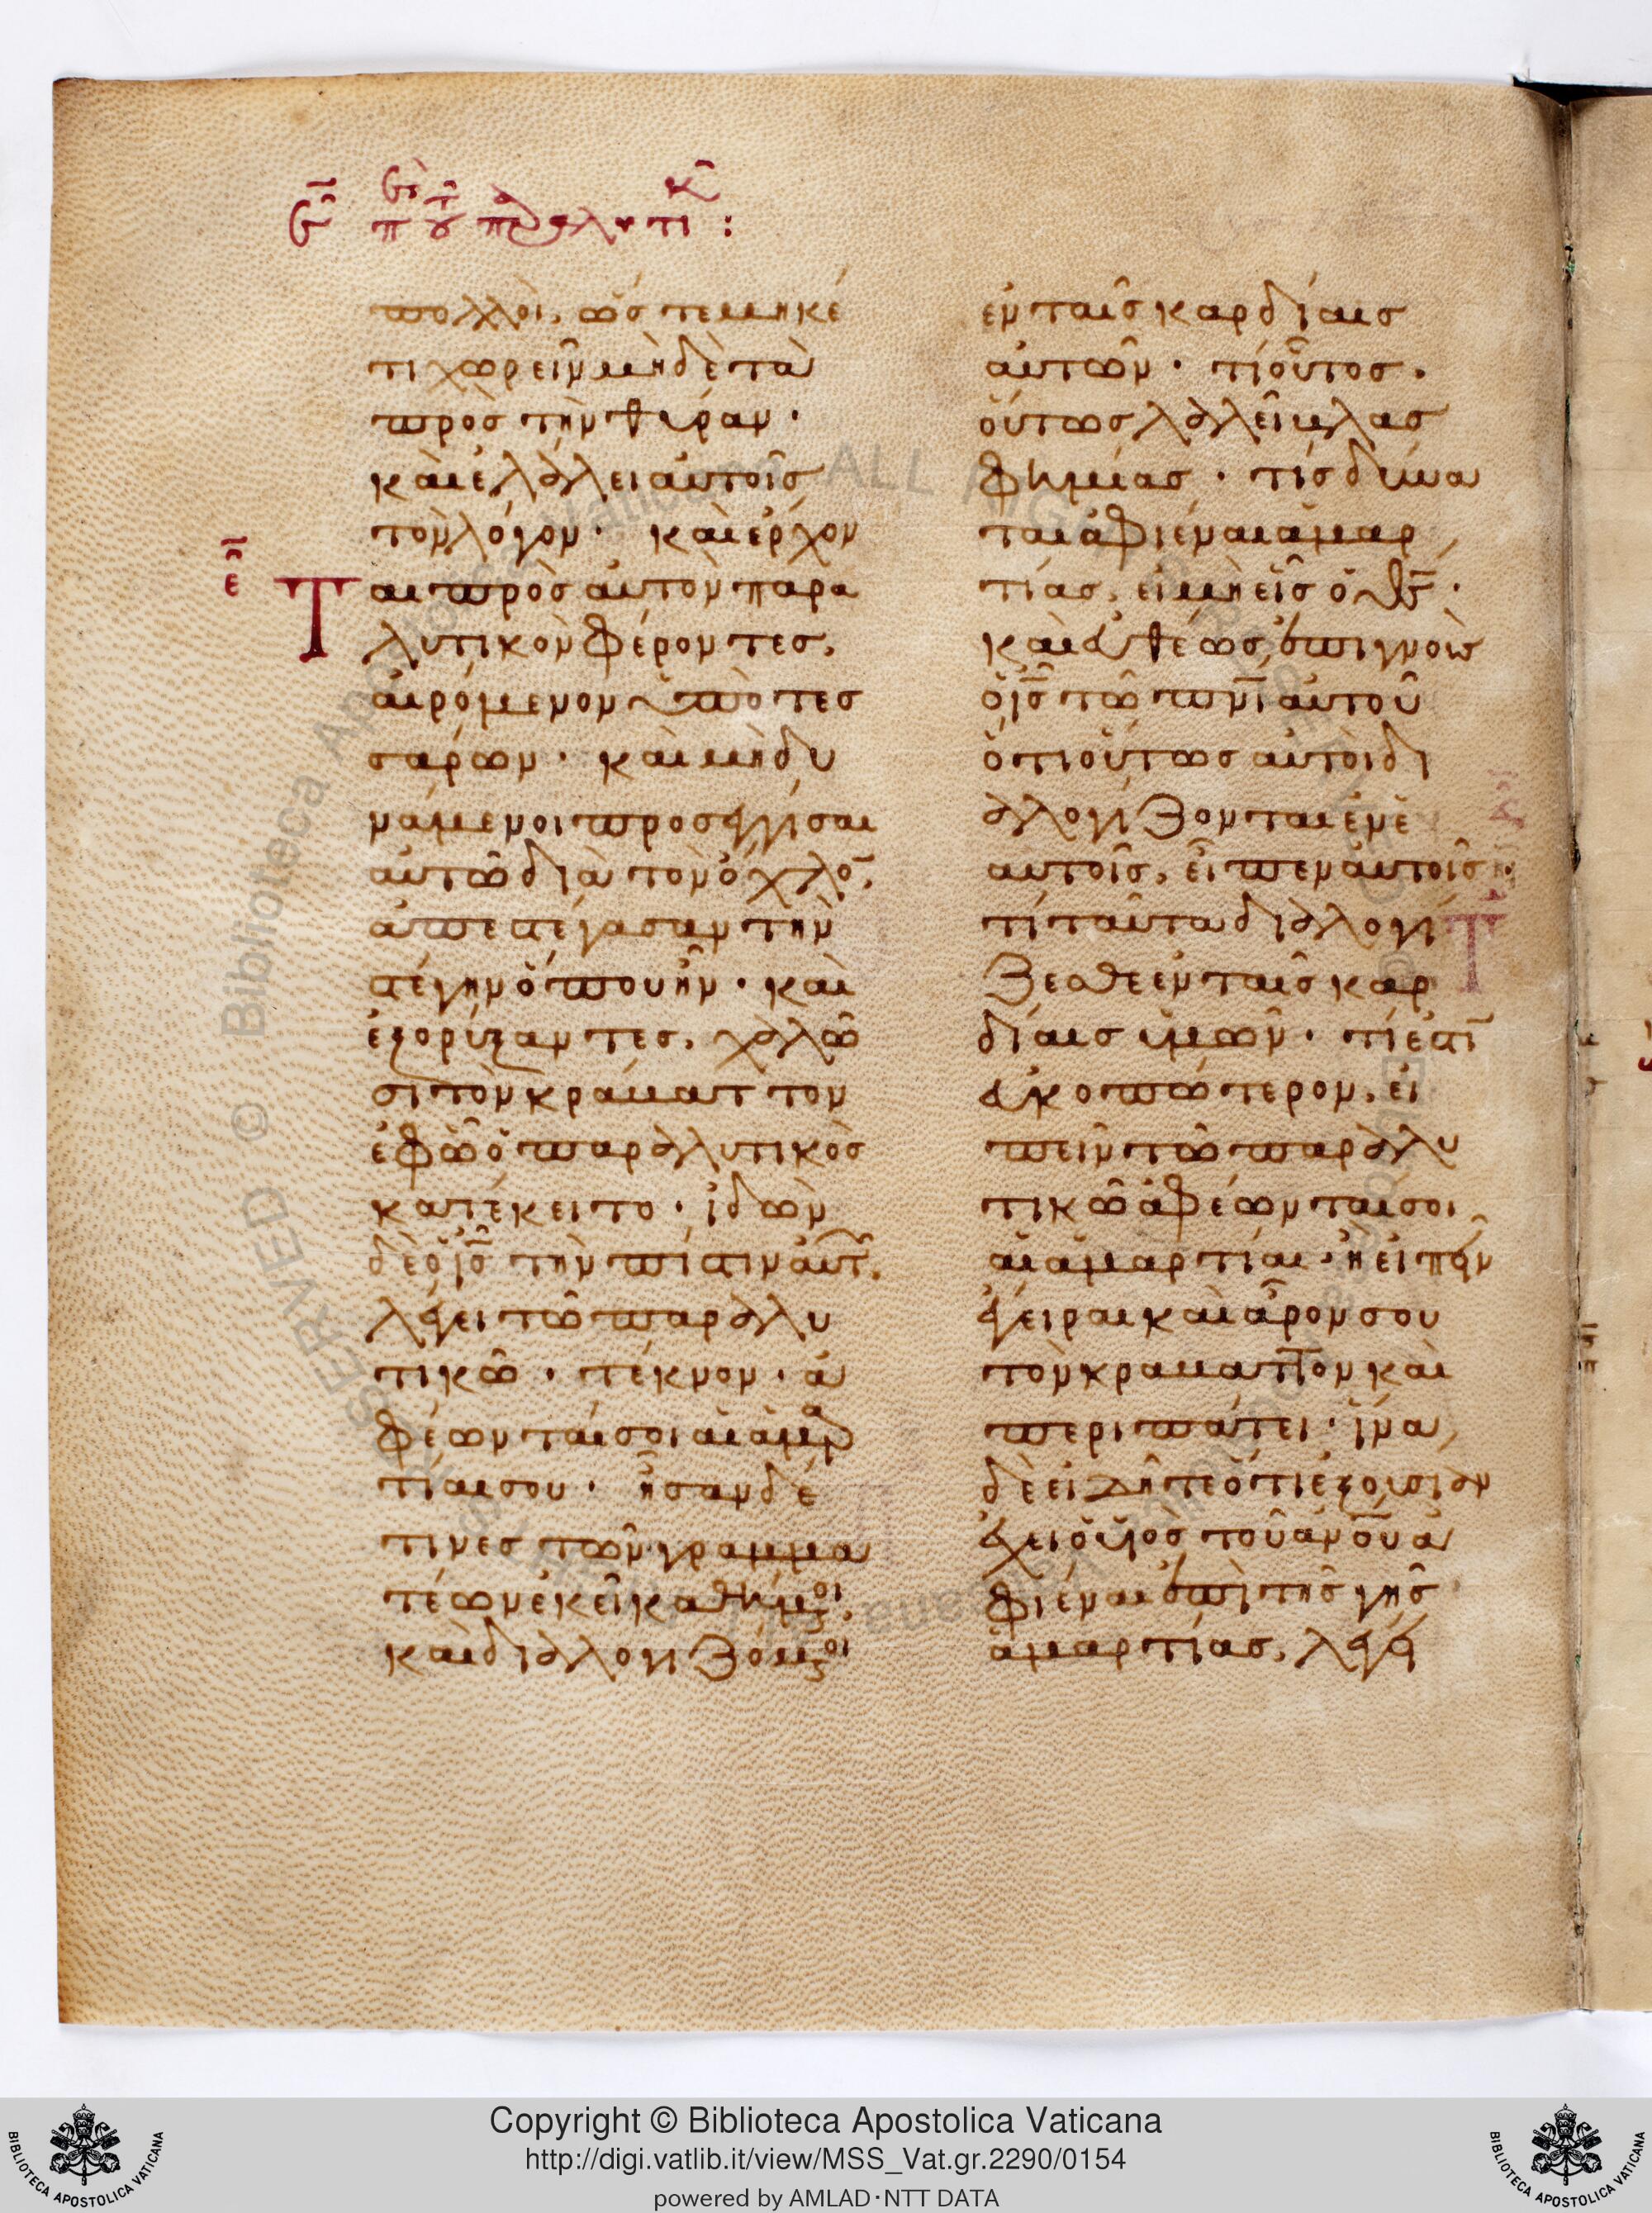 ε̅ περὶ τοῦ παραλυτικ :
πολλοὶ, ὥστε μηκέ
τι χωρεῖν μηδὲ τὰ
πρὸς τὴν θύραν·
καὶ ἐλάλει αὐτοῖς
τὸν λόγον· καὶ ἔρχον
ε̅
Ται πρὸς αὐτὸν παρα
λυτικὸν φέροντες,
αἰρόμενον ὑπὸ τεσ
σάρων· καὶ μὴ δυ
νάμενοι προσεγγίσαι
αὐτῶ διὰ τὸν ὄχλο̅,
ἀπεστέγασαν τὴν
στέγην ὅπου ἦν· καὶ
ἐξορύξαντες, χαλῶ
σι τὸν κράματτον
ἐφ ὧ ὁ παραλυτικὸς
κατέκειτο· ἰδὼν
δὲ ὁ ι̅ς̅ τὴν πίστιν αὐτ̅,
λέγει τῶ παραλυ
τικῶ· τέκνον· ἀ
φέωνταί σοι αἱ ἁμαρ
τίαι σου· ἦσαν δέ
τινες τῶν γραμμα
τέων ἐκεῖ καθήμενοι,
καὶ διαλογιζόμενοι
ἐν ταῖς καρδίαις
αὐτῶν· τί οὗτος,
οὕτως λαλεῖ βλασ
φημίας· τίς δύνα
ται ἀφιέναι ἁμαρ
τίας, εἰ μὴ εἷς ὁ θ̅ς̅·
καὶ εὐθέως, ἐπιγνοὺς
ὁ ι̅ς̅ τῶ π̅ν̅ι̅ αὐτοῦ
ὅτι οὕτως αὐτοὶ δι
αλογίζονται ἐν ἑ
αυτοῖς, εἶπεν αὐτοῖς
τί ταῦτα διαλογί
ζεσθε ἐν ταῖς καρ
δίαις ὑμῶν· τί ἐστι̅
εὐκοπώτερον, εἰ
πεῖν τῶ παραλυ
τικῶ ἀφέωνταί σοι
αἱ ἁμαρτίαι· ἢ εἰπεῖν
ἔγειραι καὶ ἆρόν σου
τὸν κράματτον καὶ
περιπάτει· ἵνα
δὲ εἰδῆτε ὅτι ἐξουσίαν
ἔχει ὁ υἱὸς τοῦ α̅ν̅ο̅υ̅ ἀ
φιέναι ἐπὶ τῆς γῆς
ἁμαρτίας, λέγει
Copyright © Biblioteca Apostolica Vaticana
http://digi.vatlib.it/view/MSS_Vat.gr.2290/0154
powered by AMLAD·NTT DATA
BIBLIOTECA APOSTOLICA VATICANA
BIBLIOTECA APOSTOLICA VATICANA